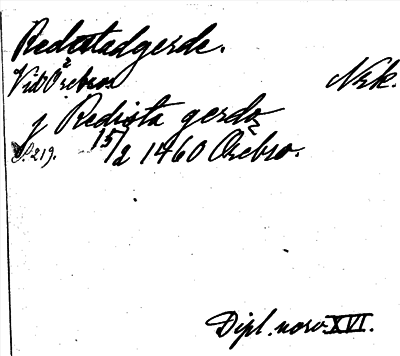 Redestadgerde.
Vid Örebro. Nrk.
j Redista gerde
S. 219. 15/2 1460 Örebro.
Dipl. norv. XVI.